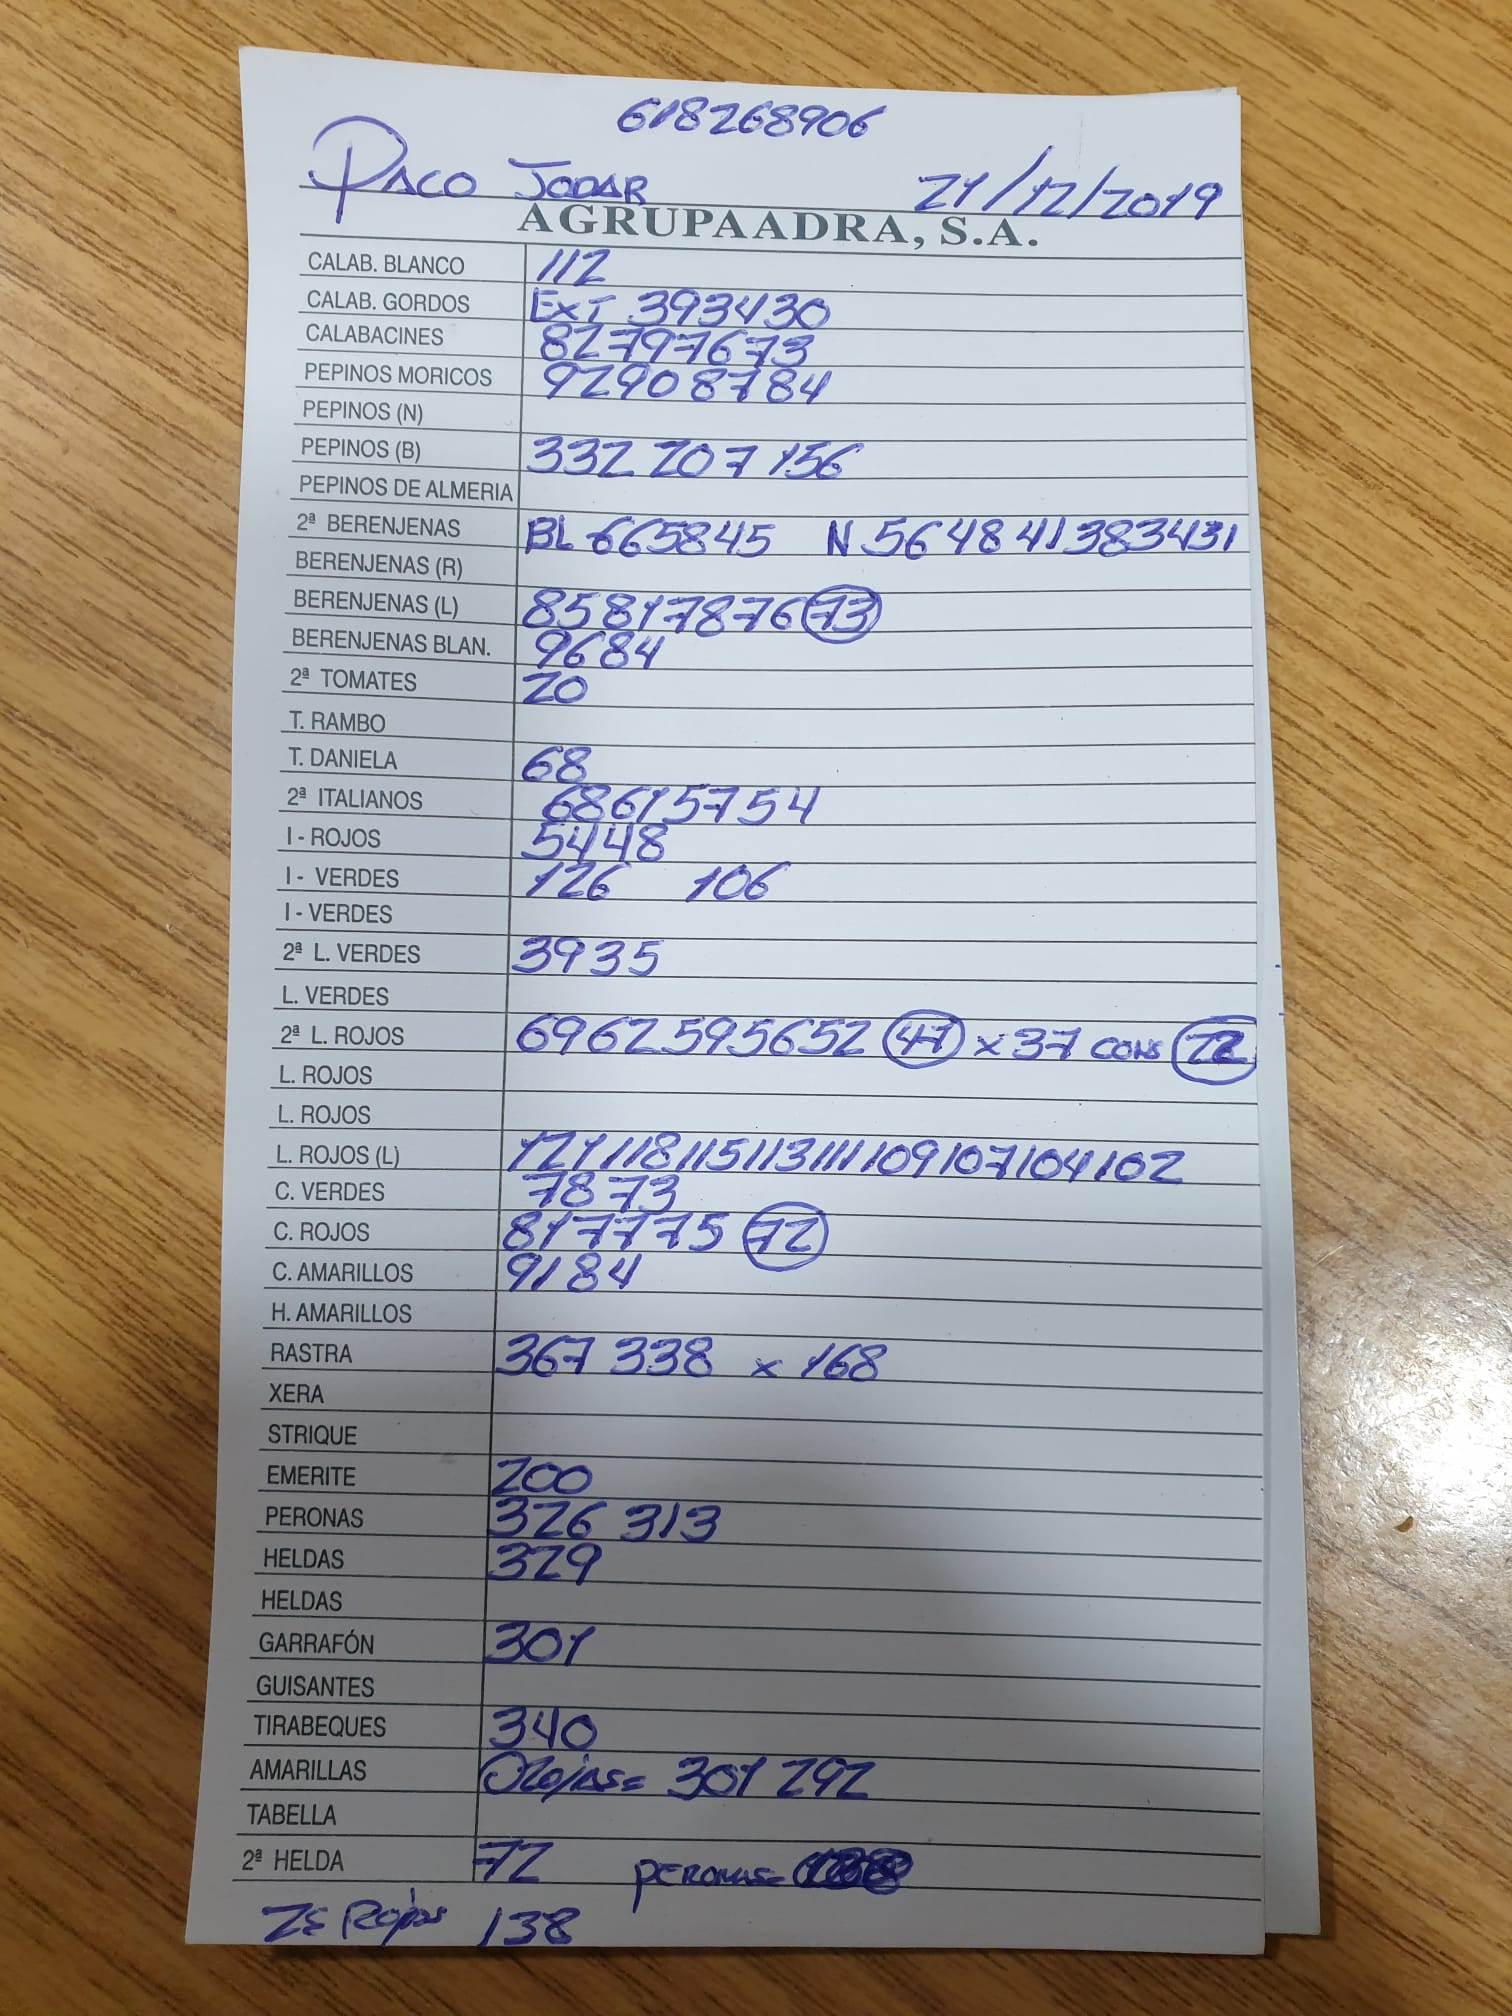 618268906
PACO JODAR 21/12/2019
AGRUPAADRA, S.A.
CALAB. BLANCO 112
CALAB. GORDOS EXT 393430
CALABACINES 82797673
PEPINOS MORICOS 92908784
PEPINOS (N)
PEPINOS (B) 332 207 156
PEPINOS DE ALMERIA
2ª BERENJENAS BL 665845 N 564841383431
BERENJENAS (R)
BERENJENAS (L) 8581787673
BERENJENAS BLAN. 9684
2ª TOMATES 20
T. RAMBO
T. DANIELA 68
2ª ITALIANOS 68615754
I - ROJOS 5448
I - VERDES 126 106
I - VERDES
2ª L. VERDES 3935
L. VERDES
2ª L. ROJOS 6962595652 47 x 37 CONS 22
L. ROJOS
L. ROJOS
L. ROJOS (L) 121118115113111109107104102
C. VERDES 7873
C. ROJOS 817775 72
C. AMARILLOS 9184
H. AMARILLOS
RASTRA 367 338 x 168
XERA
STRIQUE
EMERITE 200
PERONAS 326 313
HELDAS 329
HELDAS
GARRAFÓN 301
GUISANTES
TIRABEQUES 340
AMARILLAS ROJAS= 301 292
TABELLA
2ª HELDA 72 PERONAS=
ROJAS 138